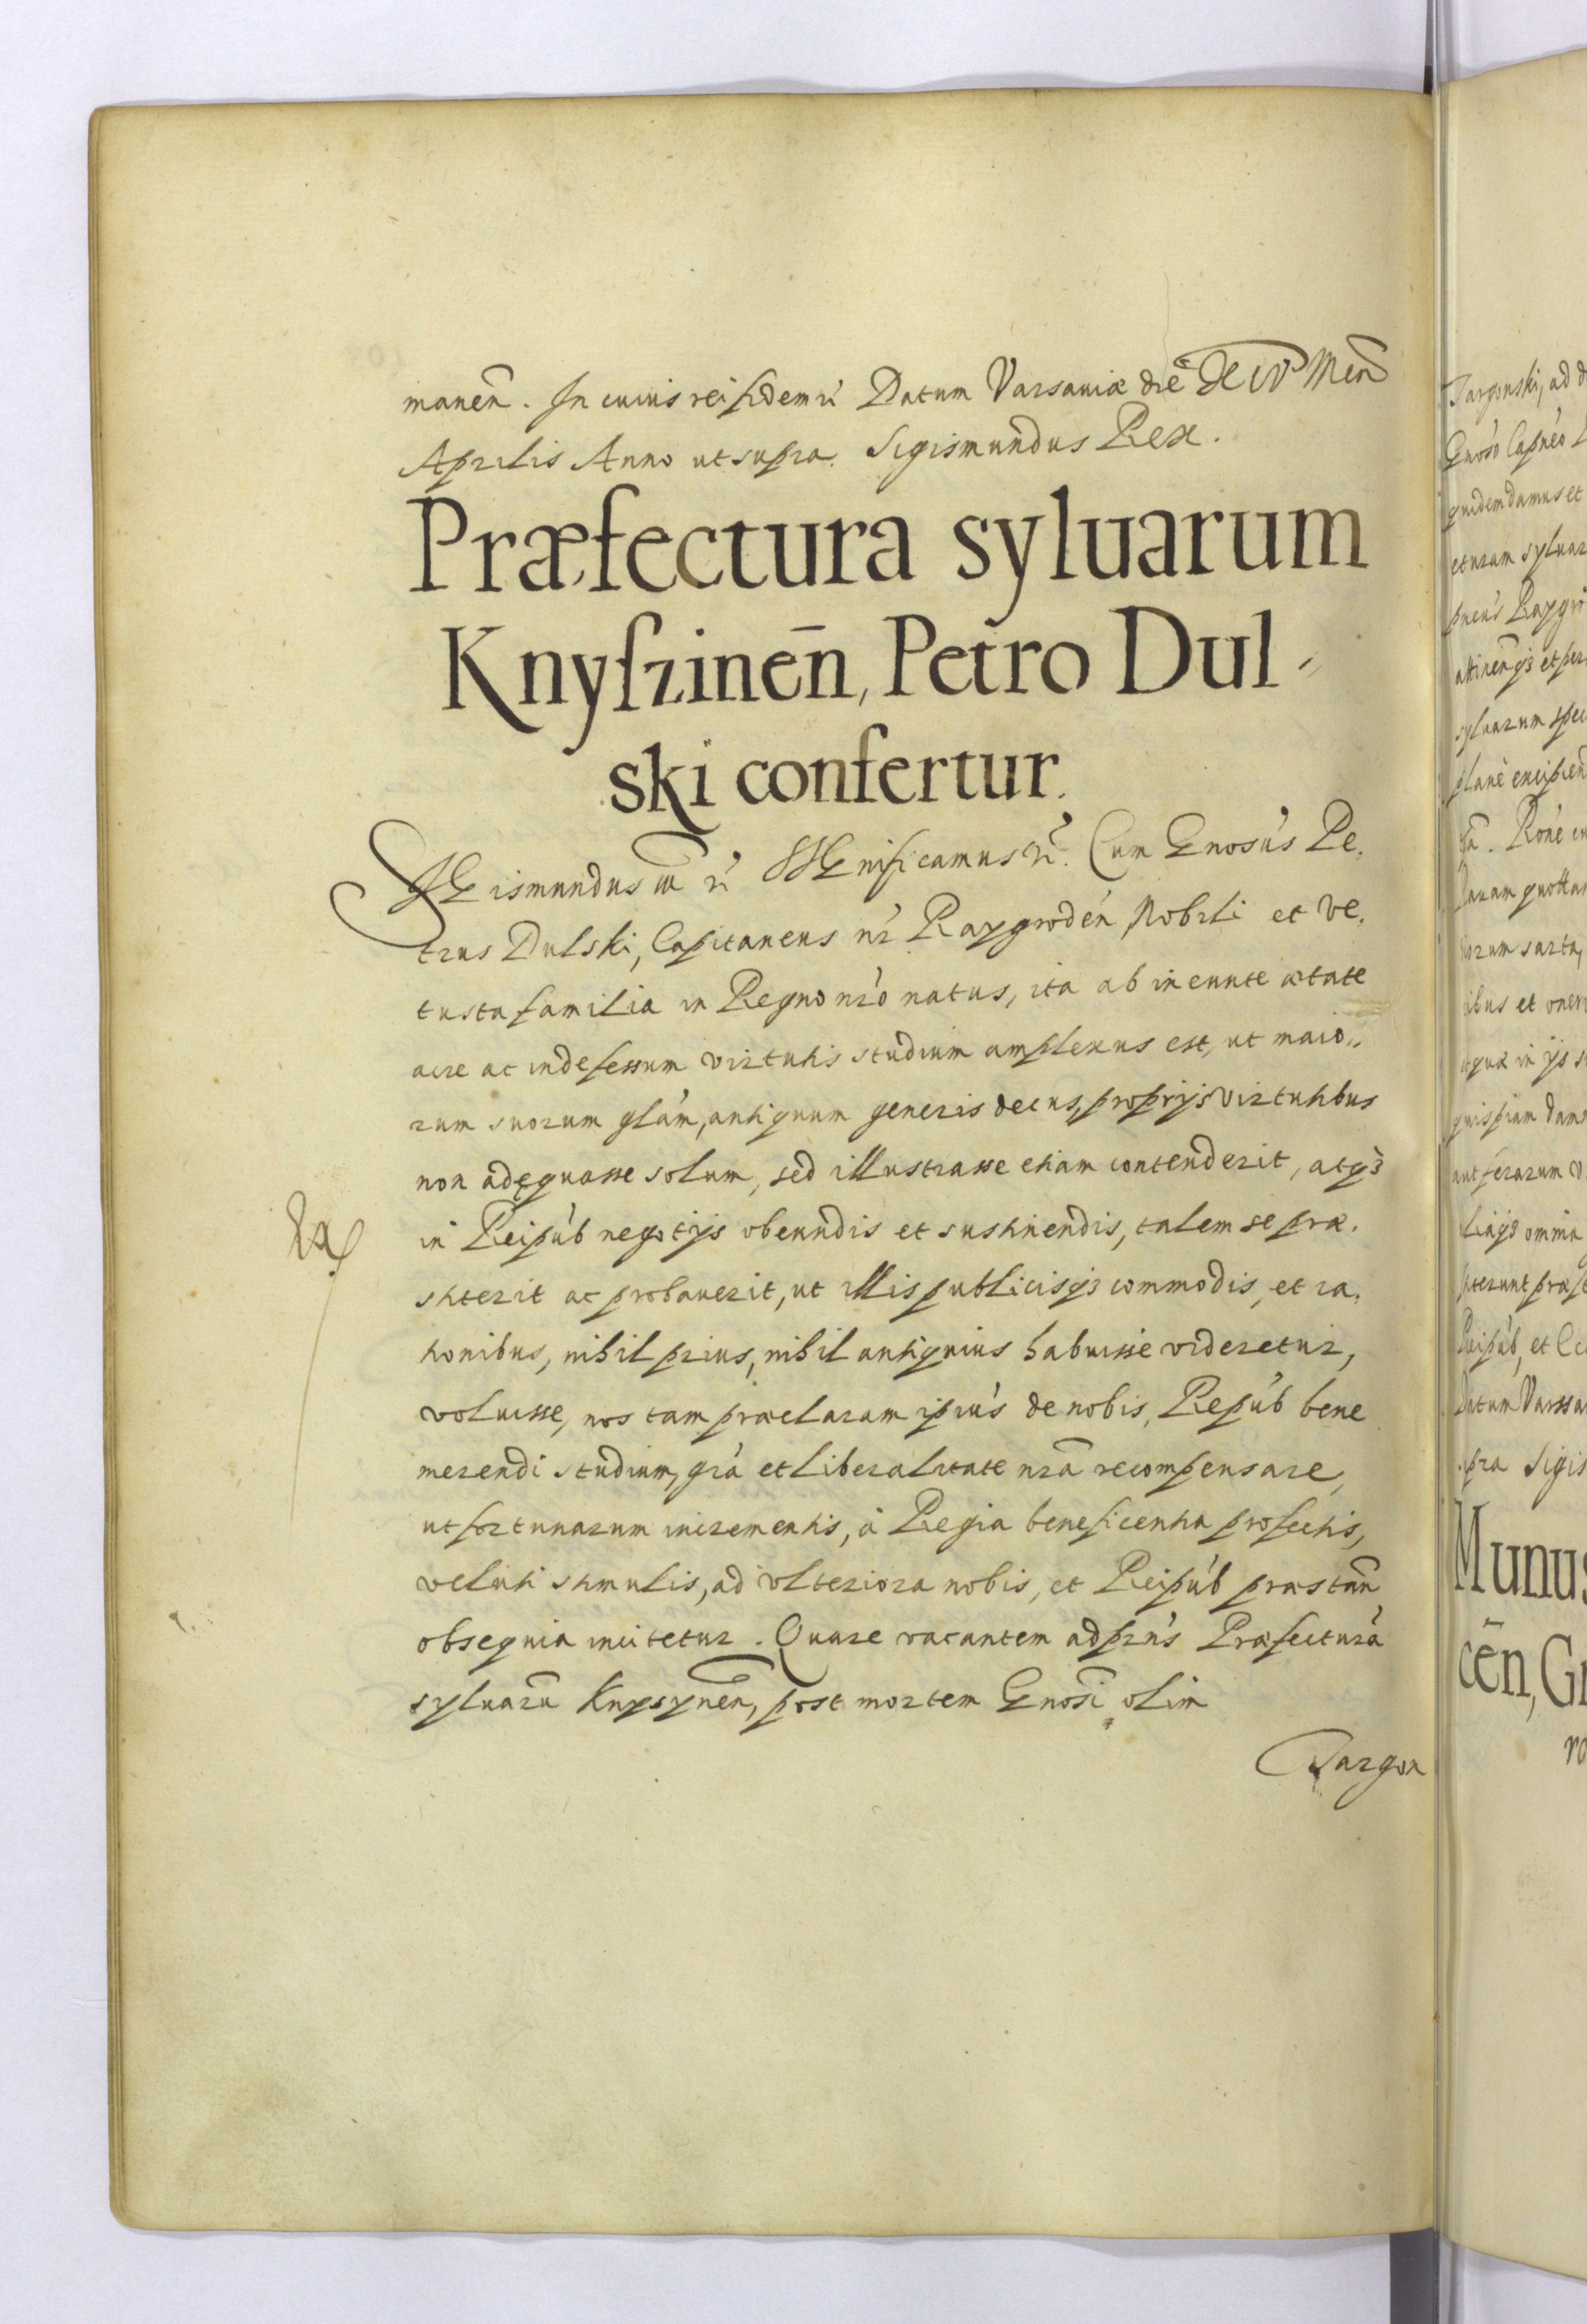 manen̄. In cuius rei fidem rc̃ Datum Varsauiæ diē XIV Men̄
Aprilis Anno ut supra. Sigismundus Rex.
Præfectura syluarum
Knyſzinen̄, Petro Dul-
ski confertur.
SIGismundus III rc̃ SIGnificamus rc̃. Cum Gnosús Pe,
trus Dulski, Capitaneus nr̃ Raygrodén, Nobili et ve,
tusta familia in Regno nr̃o natus, ita ab ineunte ætate
acre ac indefessum virtutis studium amplexus est, ut maio,,
rum suorum glám, antiquum generis decus, proprijs virtutibus
non adęquasse solum, sed illustrasse etiam contenderit, atqꝫ
in Reipúb negotijs obeundis et sustinendis, talem se præ,
stiterit ac probauerit, ut illis publicisqꝫ commodis, et ra,
tionibus, nihil prius, nihil antiquius habuisse videretur,
voluisse, nos tam præclaram ipiús de nobis, Repúb bene
merendi studium, grá et liberalitate nrã recompensare,
ut fortunarum incrementis, á Regia beneficentia profectis,
veluti stimulis, ad vlteriora nobis, et Reipúb præstan̄
obsequia incitetur. Quare vacantem ad prn̄s Præfecturã
syluarũ Knysynen̄, post mortem Gnosi olim
Targon
Targonski, ad d
Gnósò Capnéo
quidem damus et
cturam syluar
pneús Raygro
attinen̄qꝫ et per
syluarum spec
planè excipien
Roné
quottan
iorum sarta,
ibus et oner
quæ in ijs s
quispiam dam
aut ferarum v
omnia
iterunt præf
Reipúb, et Ec
Datum Varssa
pra Sigis
Munus
cēn, Gr
ro